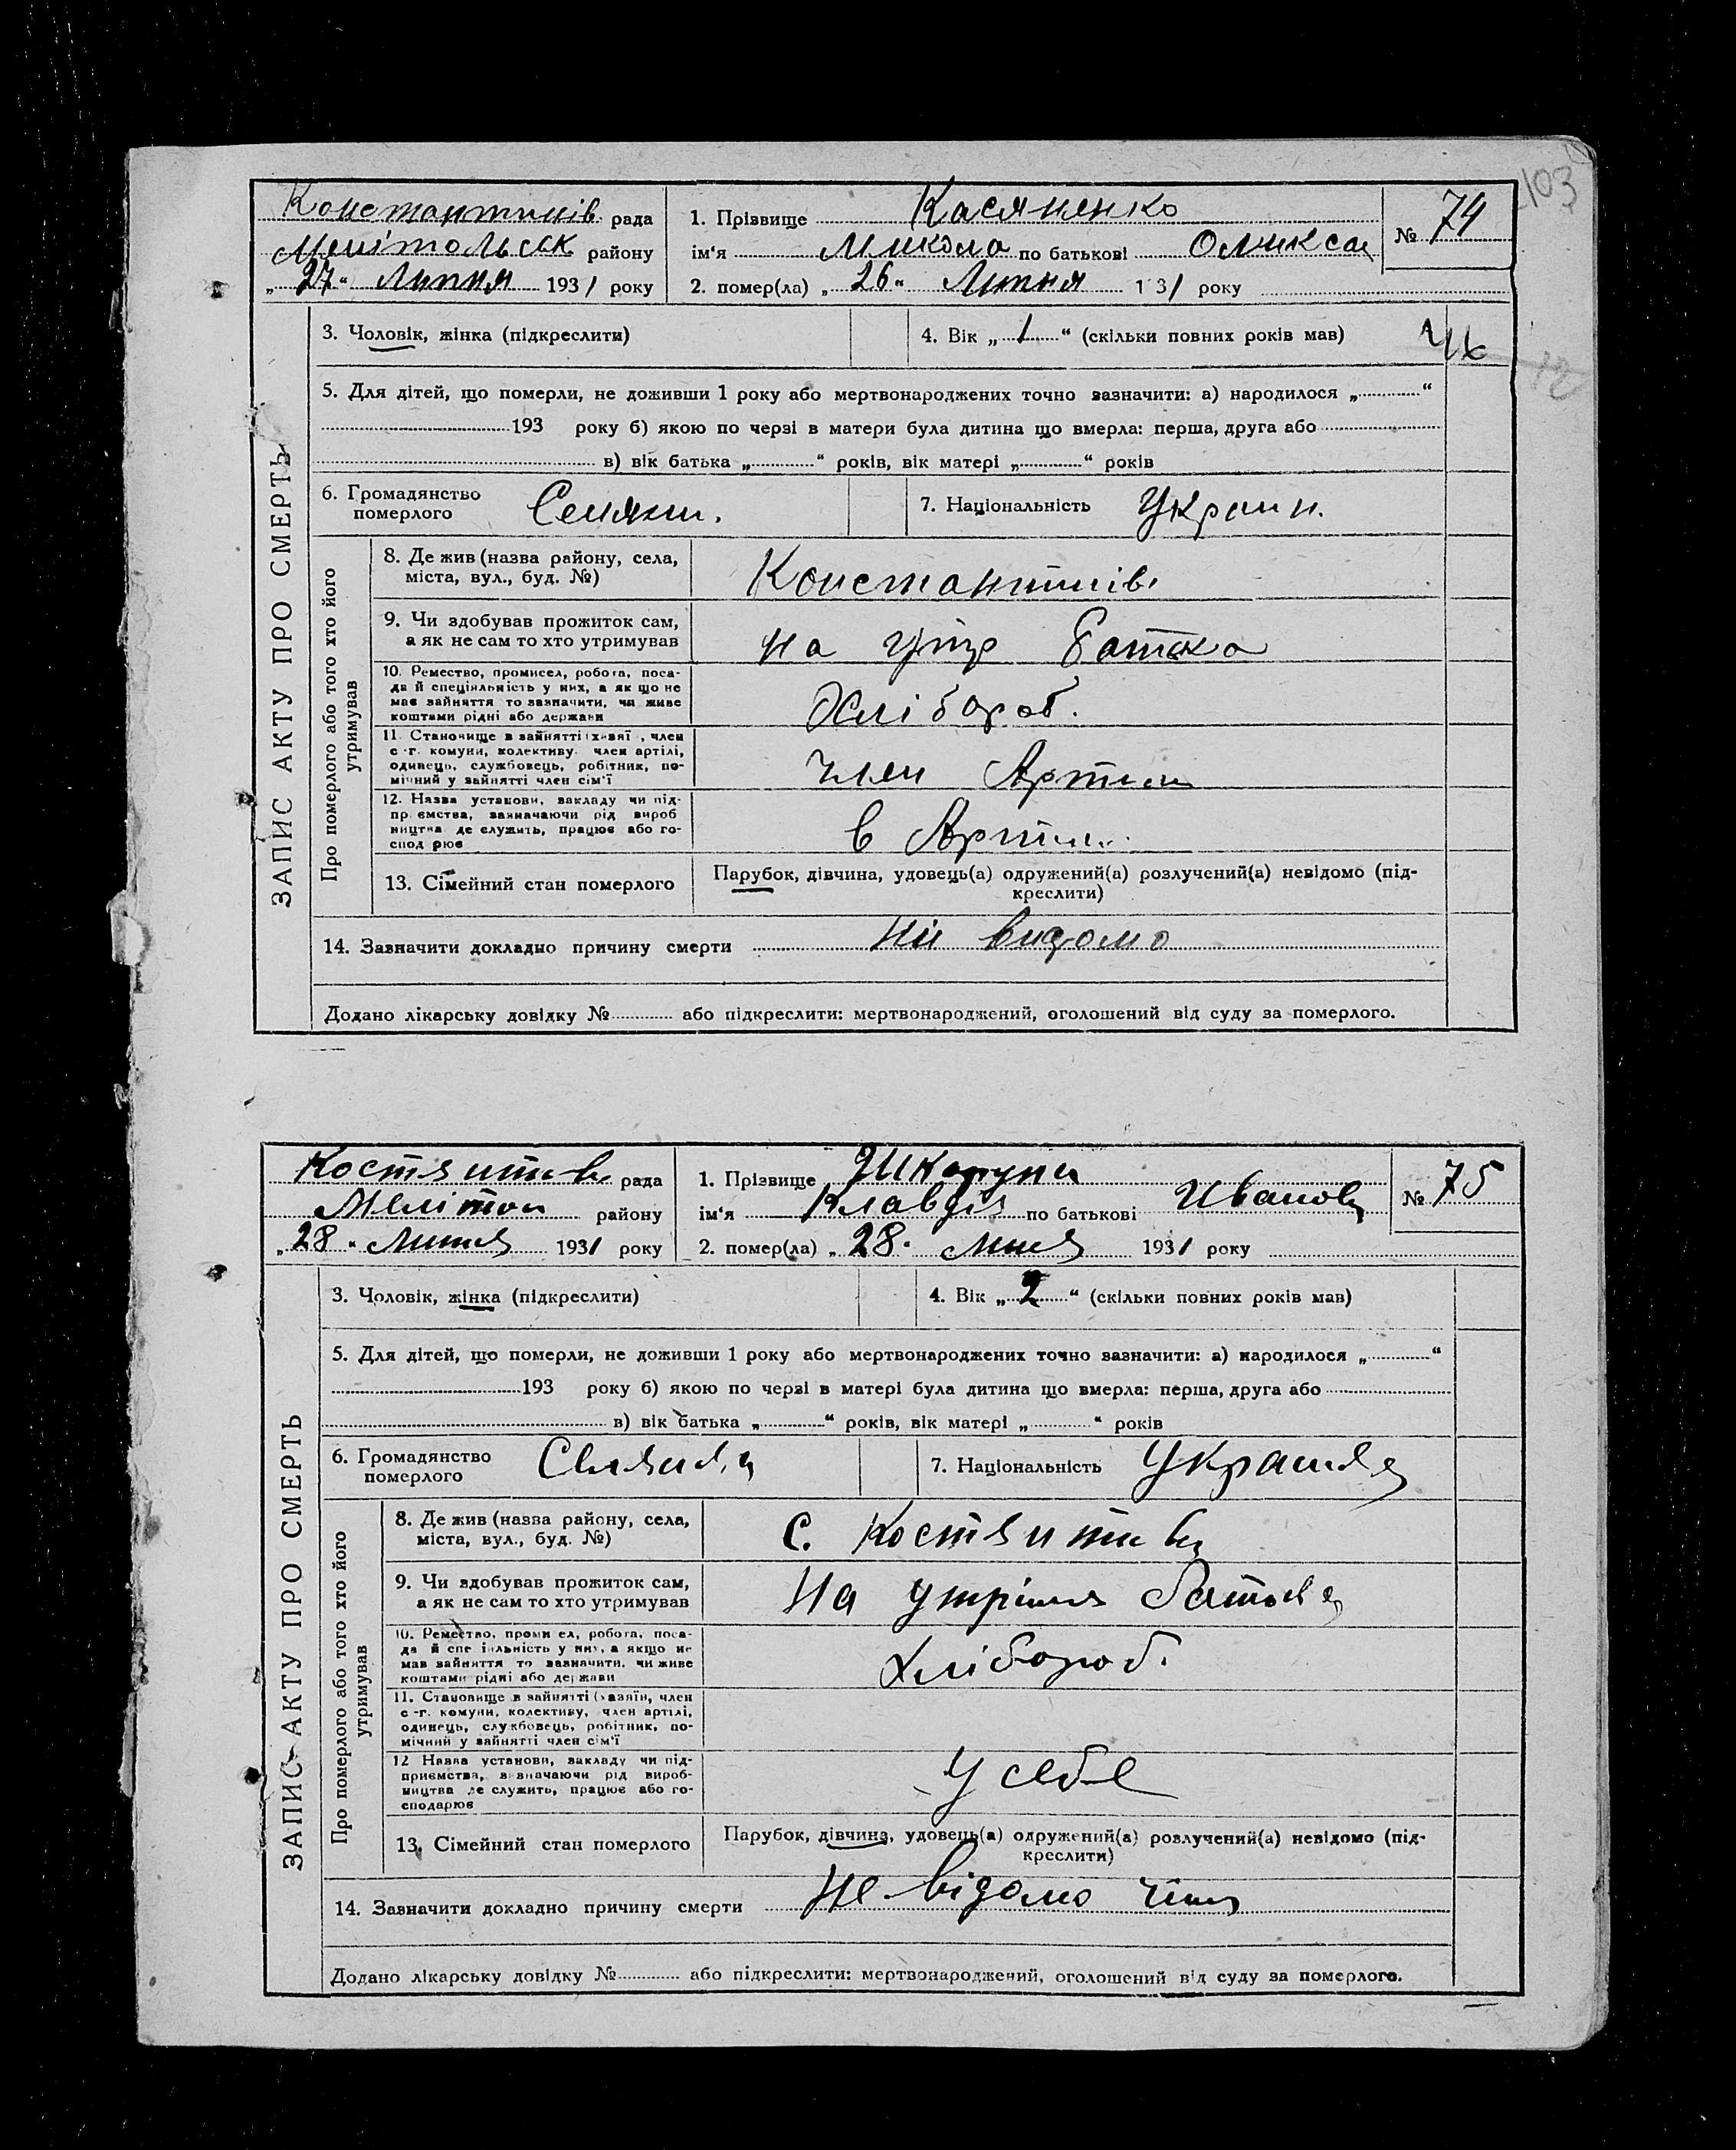 103
Константинів рада
Мелітольськ району
„27“ Липня 1931 року
1. Прізвище Касяненко
ім‘я Микола по батькові Оликса
2. помер(ла) „26“ Липня 1 31 року
№ 74
ЗАПИС АКТУ ПРО СМЕРТЬ
3. Чоловік, жінка (підкреслити)
4. Вік „1“ (скільки повних років мав)
5. Для дітей, що померли, не доживши 1 року або мертвонароджених точно зазначити: а) народилося „ “
193 року б) якою по черзі в матери була дитина що вмерла: перша, друга або
в) вік батька „ “ років, вік матері „ “ років
6. Громадянство
померлого
Селякин.
7. Національність Украин.
Про померлого або того хто його
утримував
8. Де жив (назва району, села,
міста, вул., буд. №)
Константинів
9. Чи здобував прожиток сам,
а як не сам то хто утримував
на утр батька
10. Ремество, промисел, робота, поса-
да й спеціяльність у них, а як що не
має зайняття то зазначити, чи живе
коштами рідні або держави
Хлібороб.
11. Становище в зайнятті (хазяї , член
с -г. комуни, колективу член артілі,
одинець, службовець, робітник, по-
мічний у зайнятті член сім'ї
член Артили
12. Назва установи, закладу чи під-
пр ємства, зазначаючи рід вироб
ництва де служить, працює або го-
спод рює
в Артили
13. Сімейний стан померлого
Парубок, дівчина, удовець(а) одружений(а) розлучений(а) невідомо (під-
креслити)
14. Зазначити докладно причину смерти ни видомо
Додано лікарську довідку № або підкреслити: мертвонароджений, оголошений від суду за померлого.
рада
Меліток району
„28“ Липня 1931 року
1. Прізвище Шкарупа
ім‘я Клавдія по батькові Иванов
2. помер(ла) „28“ 1931 року
№ 75
ЗАПИС АКТУ ПРО СМЕРТЬ
3. Чоловік, жінка (підкреслити)
4. Вік „2“ (скільки повних років мав)
5. Для дітей, що померли, не доживши 1 року або мертвонароджених точно зазначити: а) народилося „ “
193 року б) якою по черзі в матері була дитина що вмерла: перша, друга або
в) вік батька „ “ років, вік матері „ “ років
6. Громадянство
померлого
7. Національність
Про померлого або того хто його
утримував
8. Де жив (назва району, села,
міста, вул., буд. №)
С.
9. Чи здобував прожиток сам,
а як не сам то хто утримував
На батька
10. Ремество, проми ел, робота, поса-
да й спе іяльність у них, а якщо не
мав зайняття то зазначити, чи живе
коштами рідні або держави
хлібороб.
11. Становище в зайнятті (хазяїн, член
с -г. комуни, колективу, член артілі,
одинець, службовець, робітник, по-
мічний у зайнятті член сім'ї
12 Назва установи, закладу чи під-
приємства, зазначаючи рід вироб-
ництва де служить, працює або го-
сподарює
У себе
13. Сімейний стан померлого
Парубок, дівчина, удовець(а) одружений(а) розлучений(а) невідомо (під-
креслити)
14. Зазначити докладно причину смерти Не відомо
Додано лікарську довідку № або підкреслити: мертвонароджений, оголошений від суду за померлого.